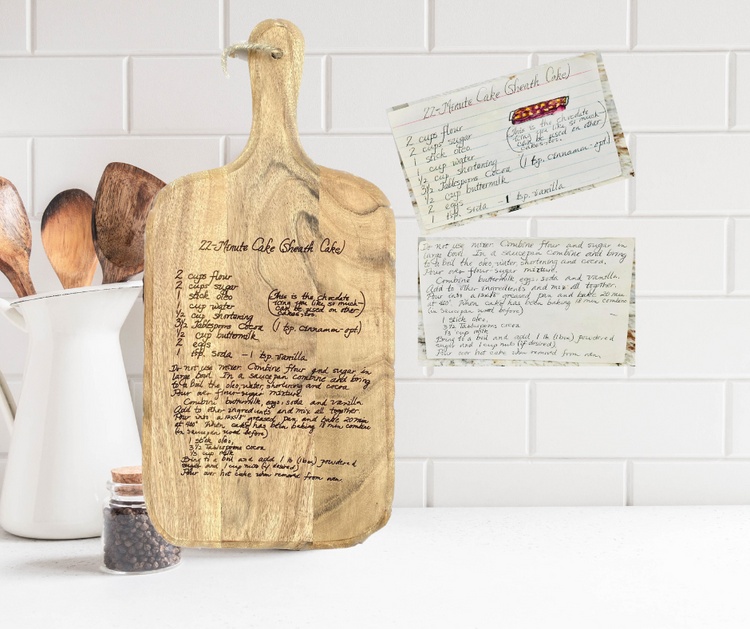 22-Minute Cake (Sheath Cake)
2 cups flour
2 cups sugar
1 stick oleo
1 cup water
1/2 cup shortening
3 1/2 Tablespoons Cocoa
1/2 cup buttermilk
2 eggs
1 tsp. soda - 1 tsp. vanilla
(This is the chocolate
icing you like so much-
can be used on other
cakes, too.)
(1 tsp. cinnamon-opt)
Do not use mixer. Combine flour and sugar in
large bowl. In a saucepan combine and bring
to a boil the oleo, water, shortening and cocoa.
Pour over flour-sugar mixture.
Combine buttermilk, eggs, soda and vanilla.
Add to other ingredients and mix all together.
Pour into a greased pan and bake 20 min
at 400°. When cake has been baking 18 min combine
(in saucepan used before)
1 stick oleo,
3 1/2 Tablespoons cocoa
1/3 cup milk
Bring to a boil and add 1 lb (1 box) powdered
sugar and 1 cup nuts (if desired)
Pour over hot cake when removed from oven
22-Minute Cake (Sheath Cake)
2 cups flour
2 cups sugar
1 stick oleo
1 cup water
1/2 cup shortening
3 1/2 Tablespoons Cocoa
1/2 cup buttermilk
2 eggs
1 tsp. soda - 1 tsp. vanilla
(This is the chocolate
icing you like so much-
can be used on other
cakes, too.)
(1 tsp. cinnamon-opt)
Do not use mixer. Combine flour and sugar in
large bowl. In a saucepan combine and bring
to a boil the oleo, water, shortening and cocoa.
Pour over flour-sugar mixture.
Combine buttermilk, eggs, soda and vanilla.
Add to other ingredients and mix all together.
Pour into a greased pan and bake 20 min
at 400°. When cake has been baking 18 min combine
(in saucepan used before)
1 stick oleo,
3 1/2 Tablespoons cocoa
1/3 cup milk
Bring to a boil and add 1 lb (1 box) powdered
sugar and 1 cup nuts (if desired)
Pour over hot cake when removed from oven